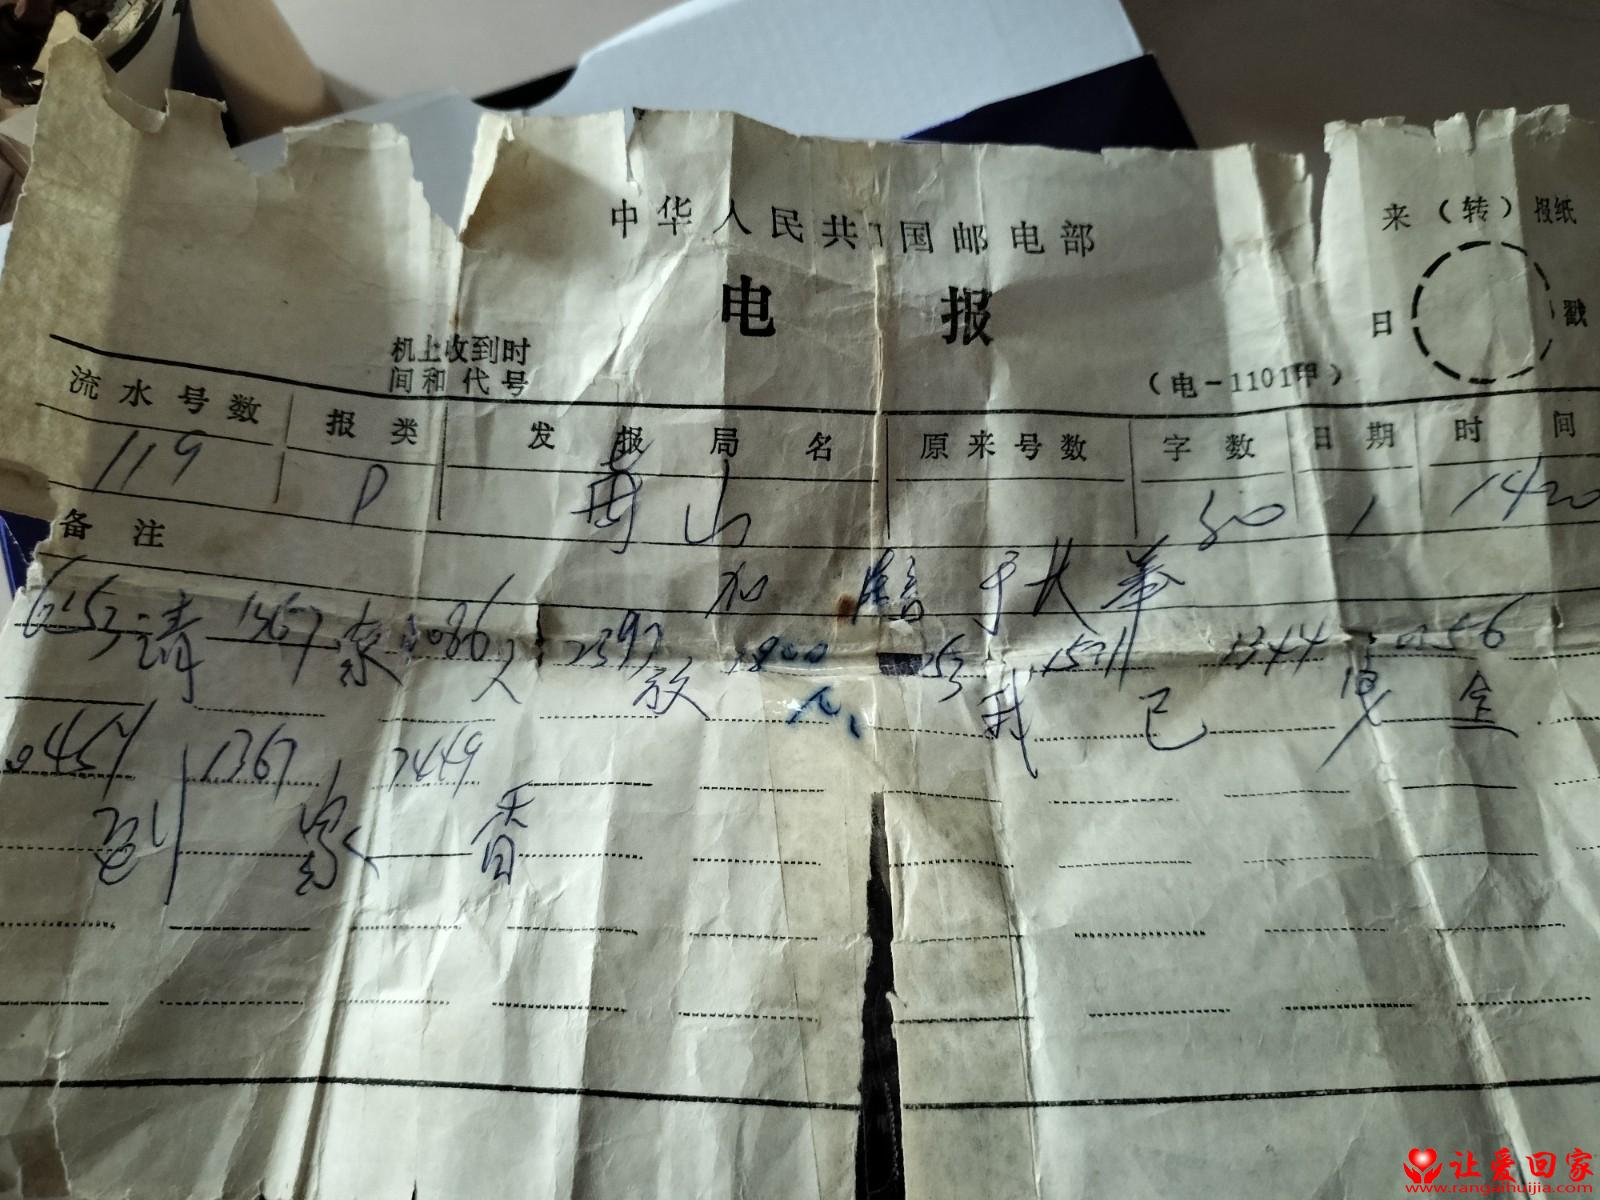 中华人民共和国邮电部
来（转）报纸
电报
日戳
机上收到时
间和代号
（电－1101甲）
流水号数 报类 发报局名 原来号数 字数 日期 时间
119 P 山 50 1 1420
备注
加
请 1367 家 人 2397 放 心 我 已 1344 安 0356 全
1367 7449
到 家 香
让爱回家
www.rangaihuijia.com